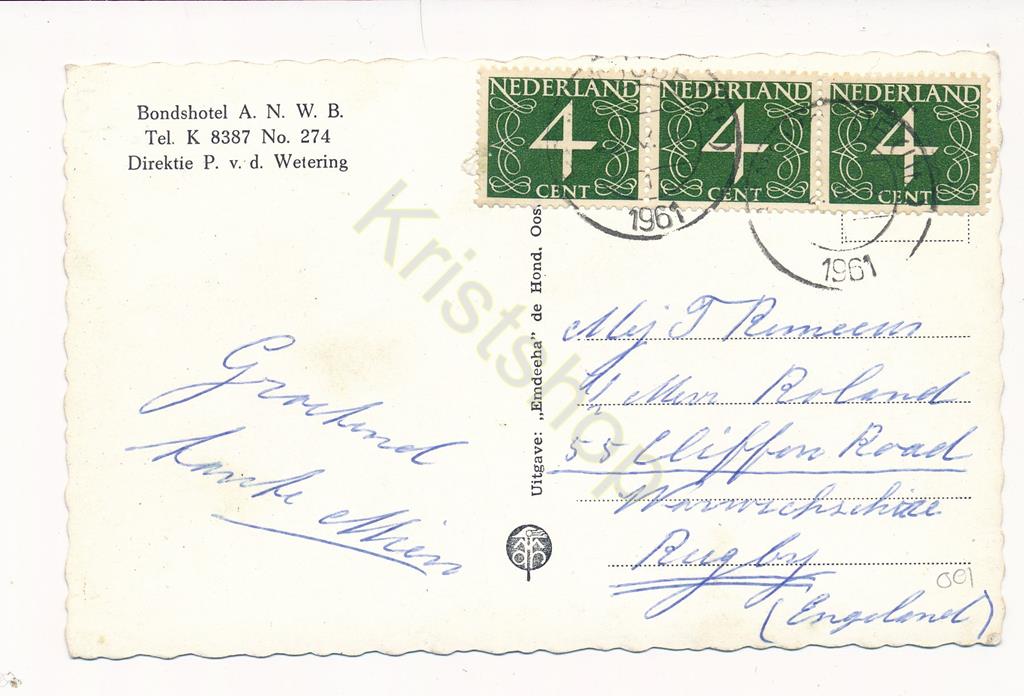 Bondshotel A. N. W. B.
Tel. K 8387 No. 274
Direktie P. v. d. Wetering
NEDERLAND NEDERLAND NEDERLAND
4 4 4
CENT CENT CENT
1961
1961
Uitgave: „Emdeeha” de Hond. Oos
Kristshop
Groetend
tante Mien
Mej T
Roland
55 Cliffon Road
Rugby
(Engeland)
001